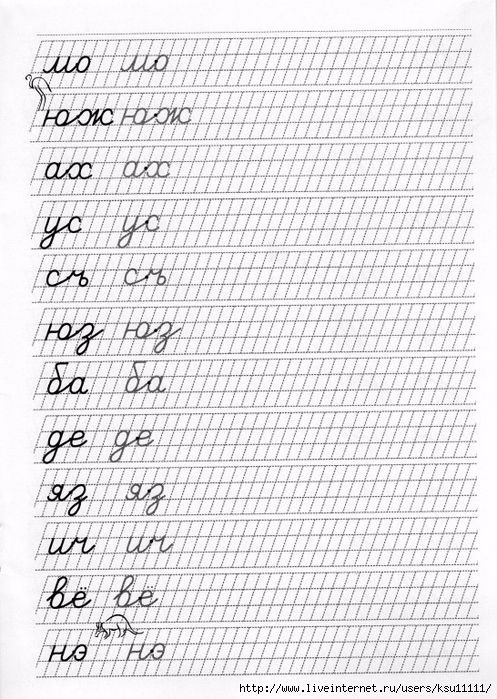 мо мо
юж юж
ах ах
ус ус
съ съ
юз юз
ба ба
де де
яз яз
ич ич
вё вё
нэ нэ
http://www.liveinternet.ru/users/ksu11111/